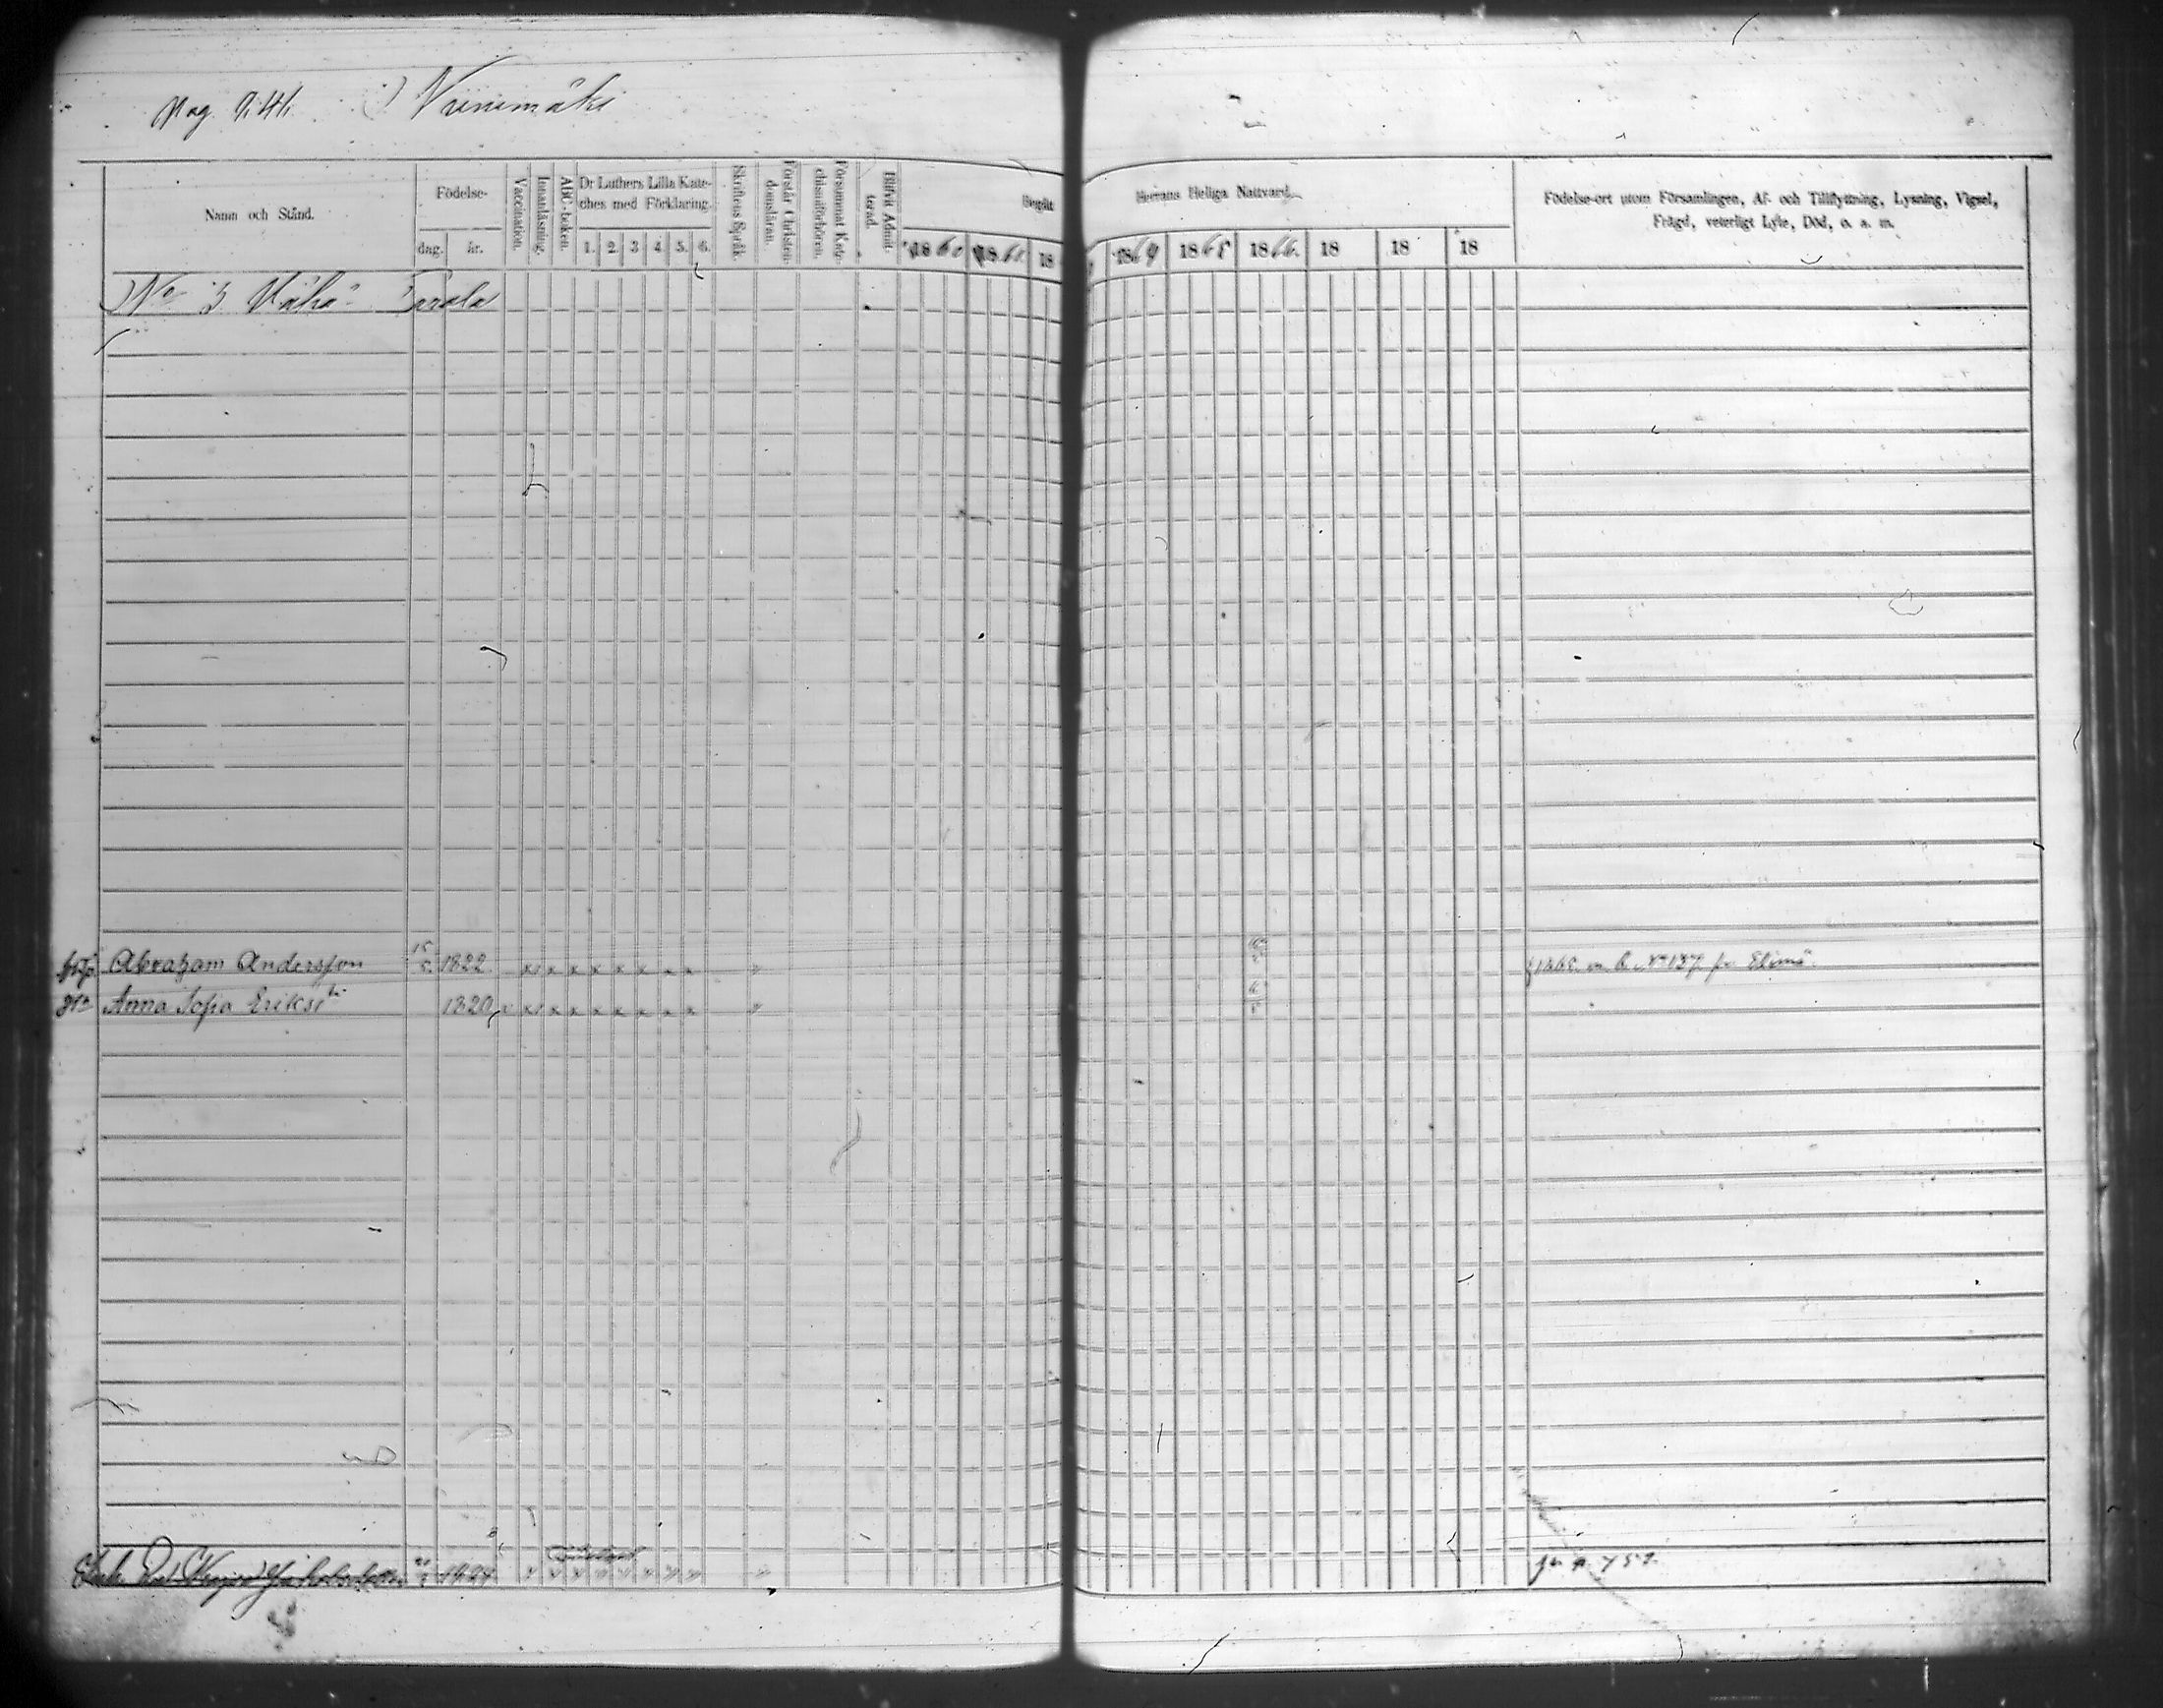 Pag. 944.
Niinimäki
Namn och Stånd.
Födelse-
dag.
år.
Vaccination.
Innanläsning.
ABC-boken.
Dr Luthers Lilla Kate-
ches med Förklaring.
1. 2 3 4 5. 6.
Skriftens Språk.
Förstår Christen-
domsläran.
Försummat Kate-
chismiförhören.
Blifvit Admit-
terad.
Begått
Herrans Heliga Nattvard.
1860 1861 18
1864 1865 1866. 18 18 18
Födelse-ort utom Församlingen, Af- och Tillflyttning, Lysning, Vigsel,
Frägd, veterligt Lyte, Död, o. a. m.
No 3 Vähä-Tarola
Abraham Andersson 15/5. 1822
1865 No 137 fr. Elimä.
Anna Sofia Eriksdr 1820
1824
p. 752